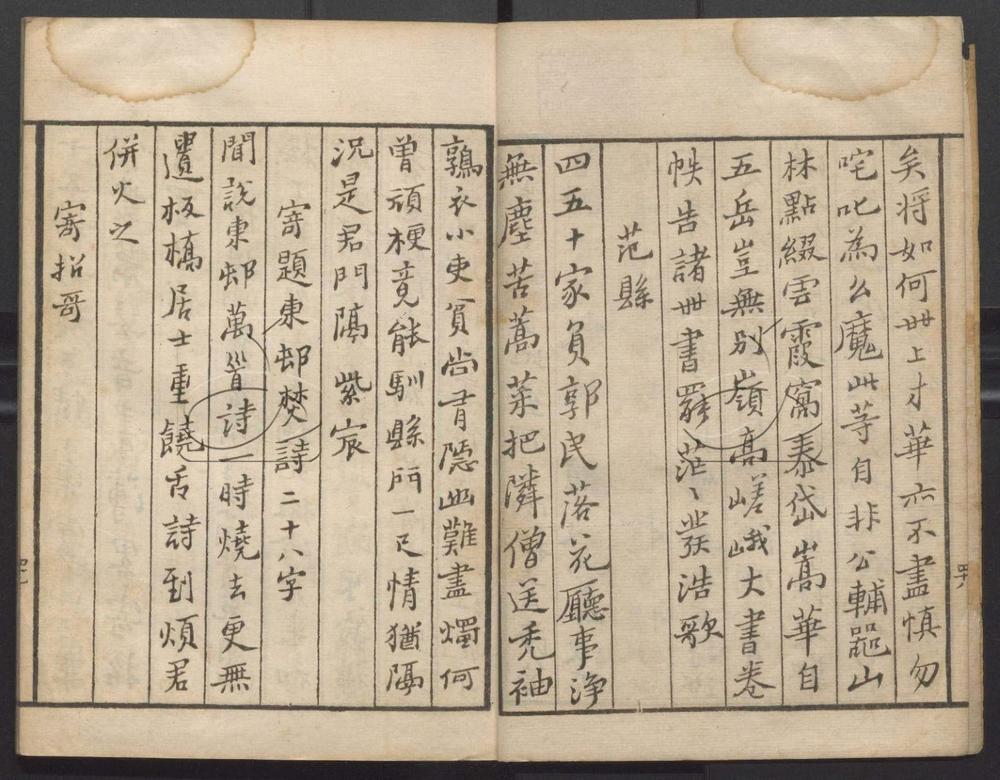 矣将如何世上才華亦不盡慎勿
咤叱為么魔此等自非公輔器山
林點綴雲霞窩泰岱嵩華自
五岳豈無別嶺高嵯峨大書卷
帙告諸世書罷茫〻發浩歌
范縣
四五十家負郭民落花廳事淨
無塵苦蒿菜把隣僧送禿袖
鶉衣小吏貧尚有隱幽難盡燭何
曾頑梗竟能馴縣門一尺情猶隔
況是君門隔紫宸
寄題東邨焚詩二十八字
聞說東邨萬首詩一時燒去更無
遺板橋居士重饒舌詩到煩君
併火之
寄招哥